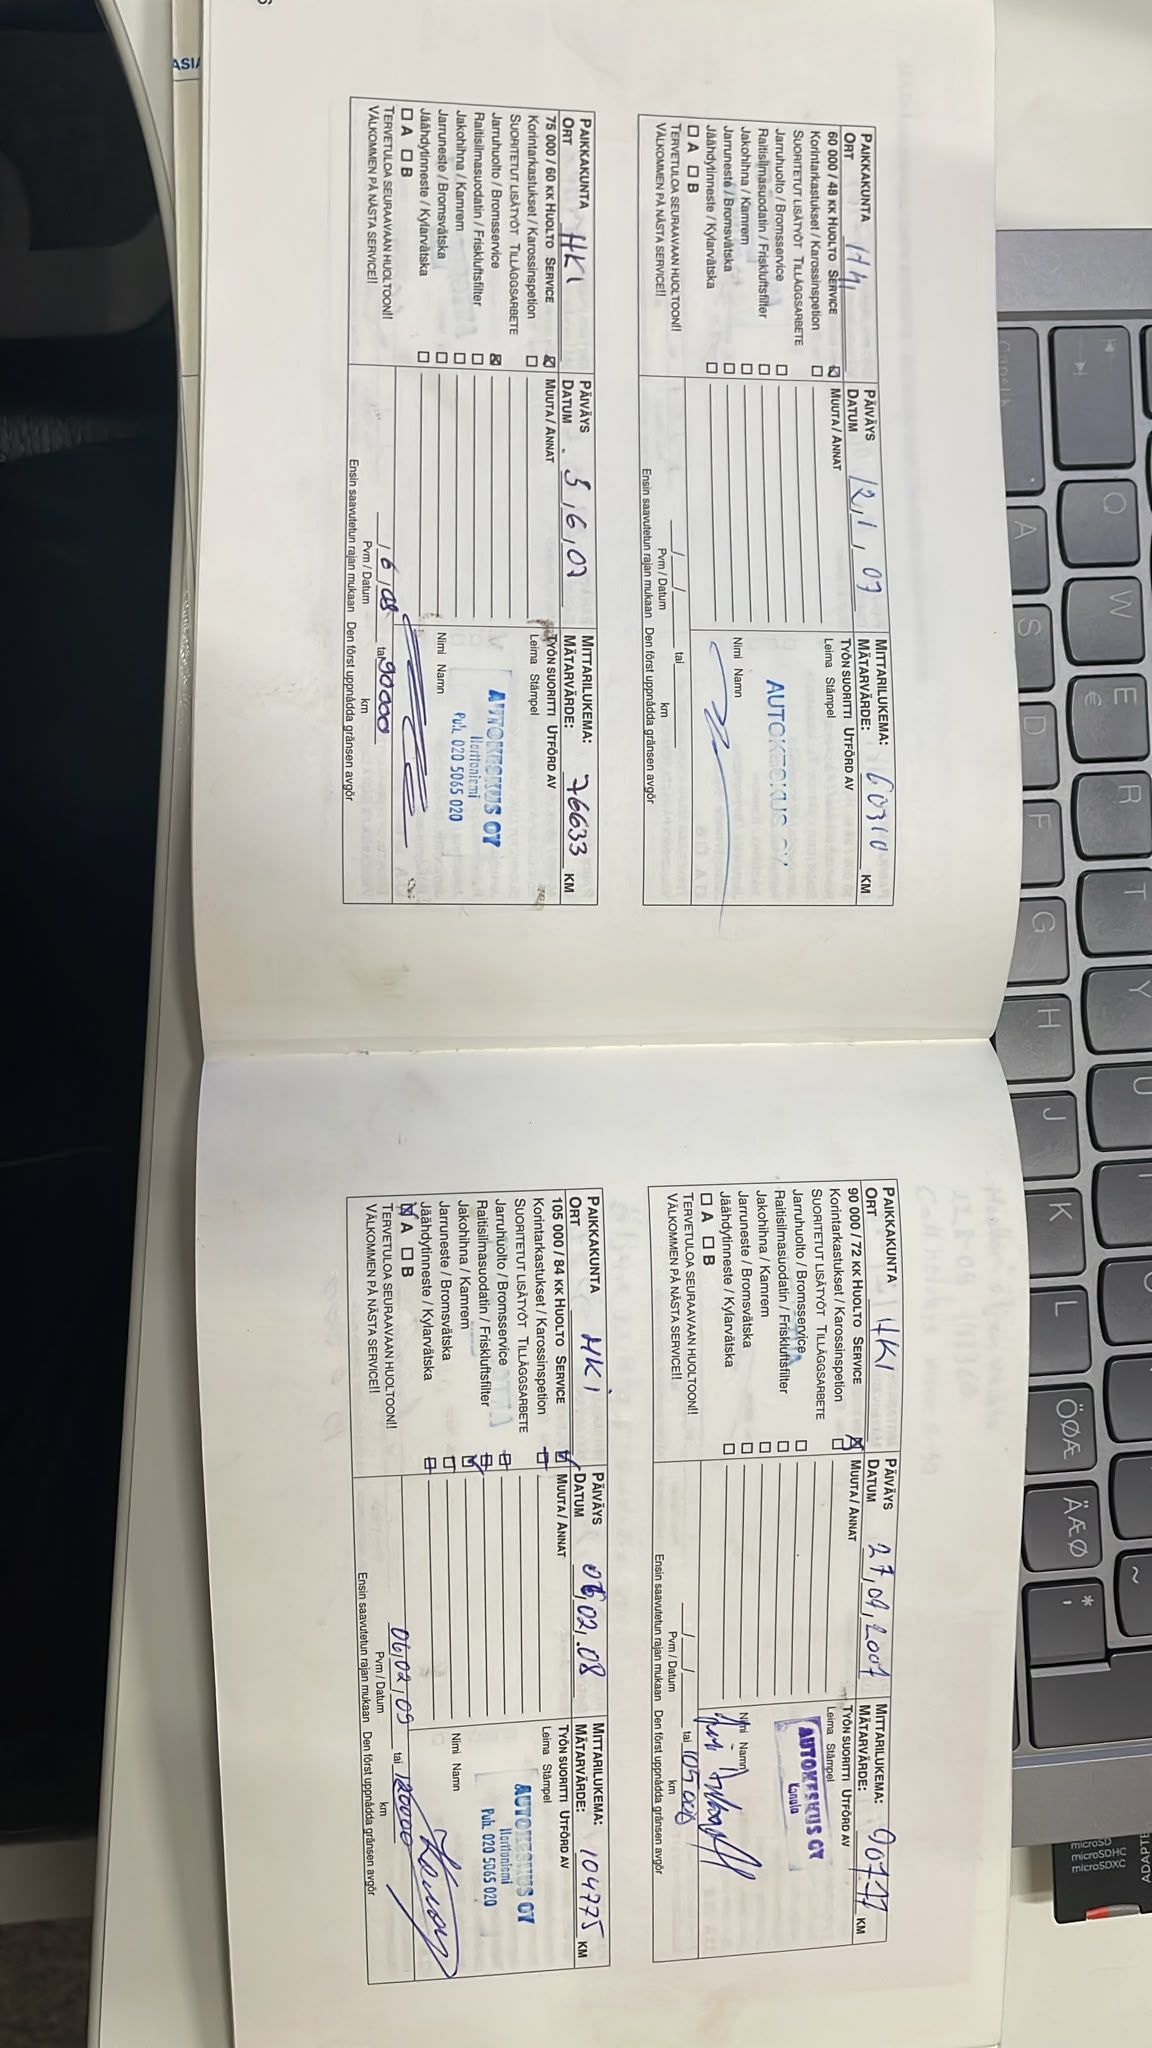 PAIKKAKUNTA HKI PÄIVÄYS 12,1,07 MITTARILUKEMA: 60310 KM
ORT DATUM MÄTARVÄRDE:
60 000 / 48 KK HUOLTO SERVICE ☒ MUUTA / ANNAT TYÖN SUORITTI UTFÖRD AV
Korintarkastukset / Karossinspetion ☐ Leima Stämpel
SUORITETUT LISÄTYÖT TILLÄGGSARBETE
Jarruhuolto / Bromsservice ☐ AUTOKESKUS OY
Raitisilmasuodatin / Friskluftsfilter ☐
Jakohihna / Kamrem ☐
Jarruneste / Bromsvätska ☐ Nimi Namn
Jäähdytinneste / Kylarvätska ☐
☐ A ☐ B
TERVETULOA SEURAAVAAN HUOLTOON!! __/__/__ tai ____
VÄLKOMMEN PÅ NÄSTA SERVICE!! Pvm / Datum km
Ensin saavutetun rajan mukaan Den först uppnådda gränsen avgör
PAIKKAKUNTA HKI PÄIVÄYS 5,6,07 MITTARILUKEMA: 76633 KM
ORT DATUM MÄTARVÄRDE:
75 000 / 60 KK HUOLTO SERVICE ☒ MUUTA / ANNAT TYÖN SUORITTI UTFÖRD AV
Korintarkastukset / Karossinspetion ☐ Leima Stämpel
SUORITETUT LISÄTYÖT TILLÄGGSARBETE
Jarruhuolto / Bromsservice ☒ AUTOKESKUS OY
Raitisilmasuodatin / Friskluftsfilter ☐ Herttoniemi
Jakohihna / Kamrem ☐ Puh. 020 5065 020
Jarruneste / Bromsvätska ☐ Nimi Namn
Jäähdytinneste / Kylarvätska ☐
☐ A ☐ B
TERVETULOA SEURAAVAAN HUOLTOON!! /6/08 tai 90000
VÄLKOMMEN PÅ NÄSTA SERVICE!! Pvm / Datum km
Ensin saavutetun rajan mukaan Den först uppnådda gränsen avgör
PAIKKAKUNTA HKI PÄIVÄYS 27,09,2007 MITTARILUKEMA: 90777 KM
ORT DATUM MÄTARVÄRDE:
90 000 / 72 KK HUOLTO SERVICE ☒ MUUTA / ANNAT TYÖN SUORITTI UTFÖRD AV
Korintarkastukset / Karossinspetion ☐ Leima Stämpel
SUORITETUT LISÄTYÖT TILLÄGGSARBETE
Jarruhuolto / Bromsservice ☐ AUTOKESKUS OY
Raitisilmasuodatin / Friskluftsfilter ☐ Konala
Jakohihna / Kamrem ☐
Jarruneste / Bromsvätska ☐ Nimi Namn
Jäähdytinneste / Kylarvätska ☐
☐ A ☐ B
TERVETULOA SEURAAVAAN HUOLTOON!! __/__/__ tai 105000
VÄLKOMMEN PÅ NÄSTA SERVICE!! Pvm / Datum km
Ensin saavutetun rajan mukaan Den först uppnådda gränsen avgör
PAIKKAKUNTA HKI PÄIVÄYS 06,02,08 MITTARILUKEMA: 104775 KM
ORT DATUM MÄTARVÄRDE:
105 000 / 84 KK HUOLTO SERVICE ☑ MUUTA / ANNAT TYÖN SUORITTI UTFÖRD AV
Korintarkastukset / Karossinspetion ☐ Leima Stämpel
SUORITETUT LISÄTYÖT TILLÄGGSARBETE
Jarruhuolto / Bromsservice ☐ AUTOKESKUS OY
Raitisilmasuodatin / Friskluftsfilter ☐ Herttoniemi
Jakohihna / Kamrem ☑ Puh. 020 5065 020
Jarruneste / Bromsvätska ☐ Nimi Namn
Jäähdytinneste / Kylarvätska ☐
☒ A ☐ B
TERVETULOA SEURAAVAAN HUOLTOON!! 06/02/09 tai 120000
VÄLKOMMEN PÅ NÄSTA SERVICE!! Pvm / Datum km
Ensin saavutetun rajan mukaan Den först uppnådda gränsen avgör
Q W E R T Y U
A S D F G H J K L ÖØÆ ÄÆØ
€
~
* '
microSD
microSDHC
microSDXC
ADAPTE
ASIA
6